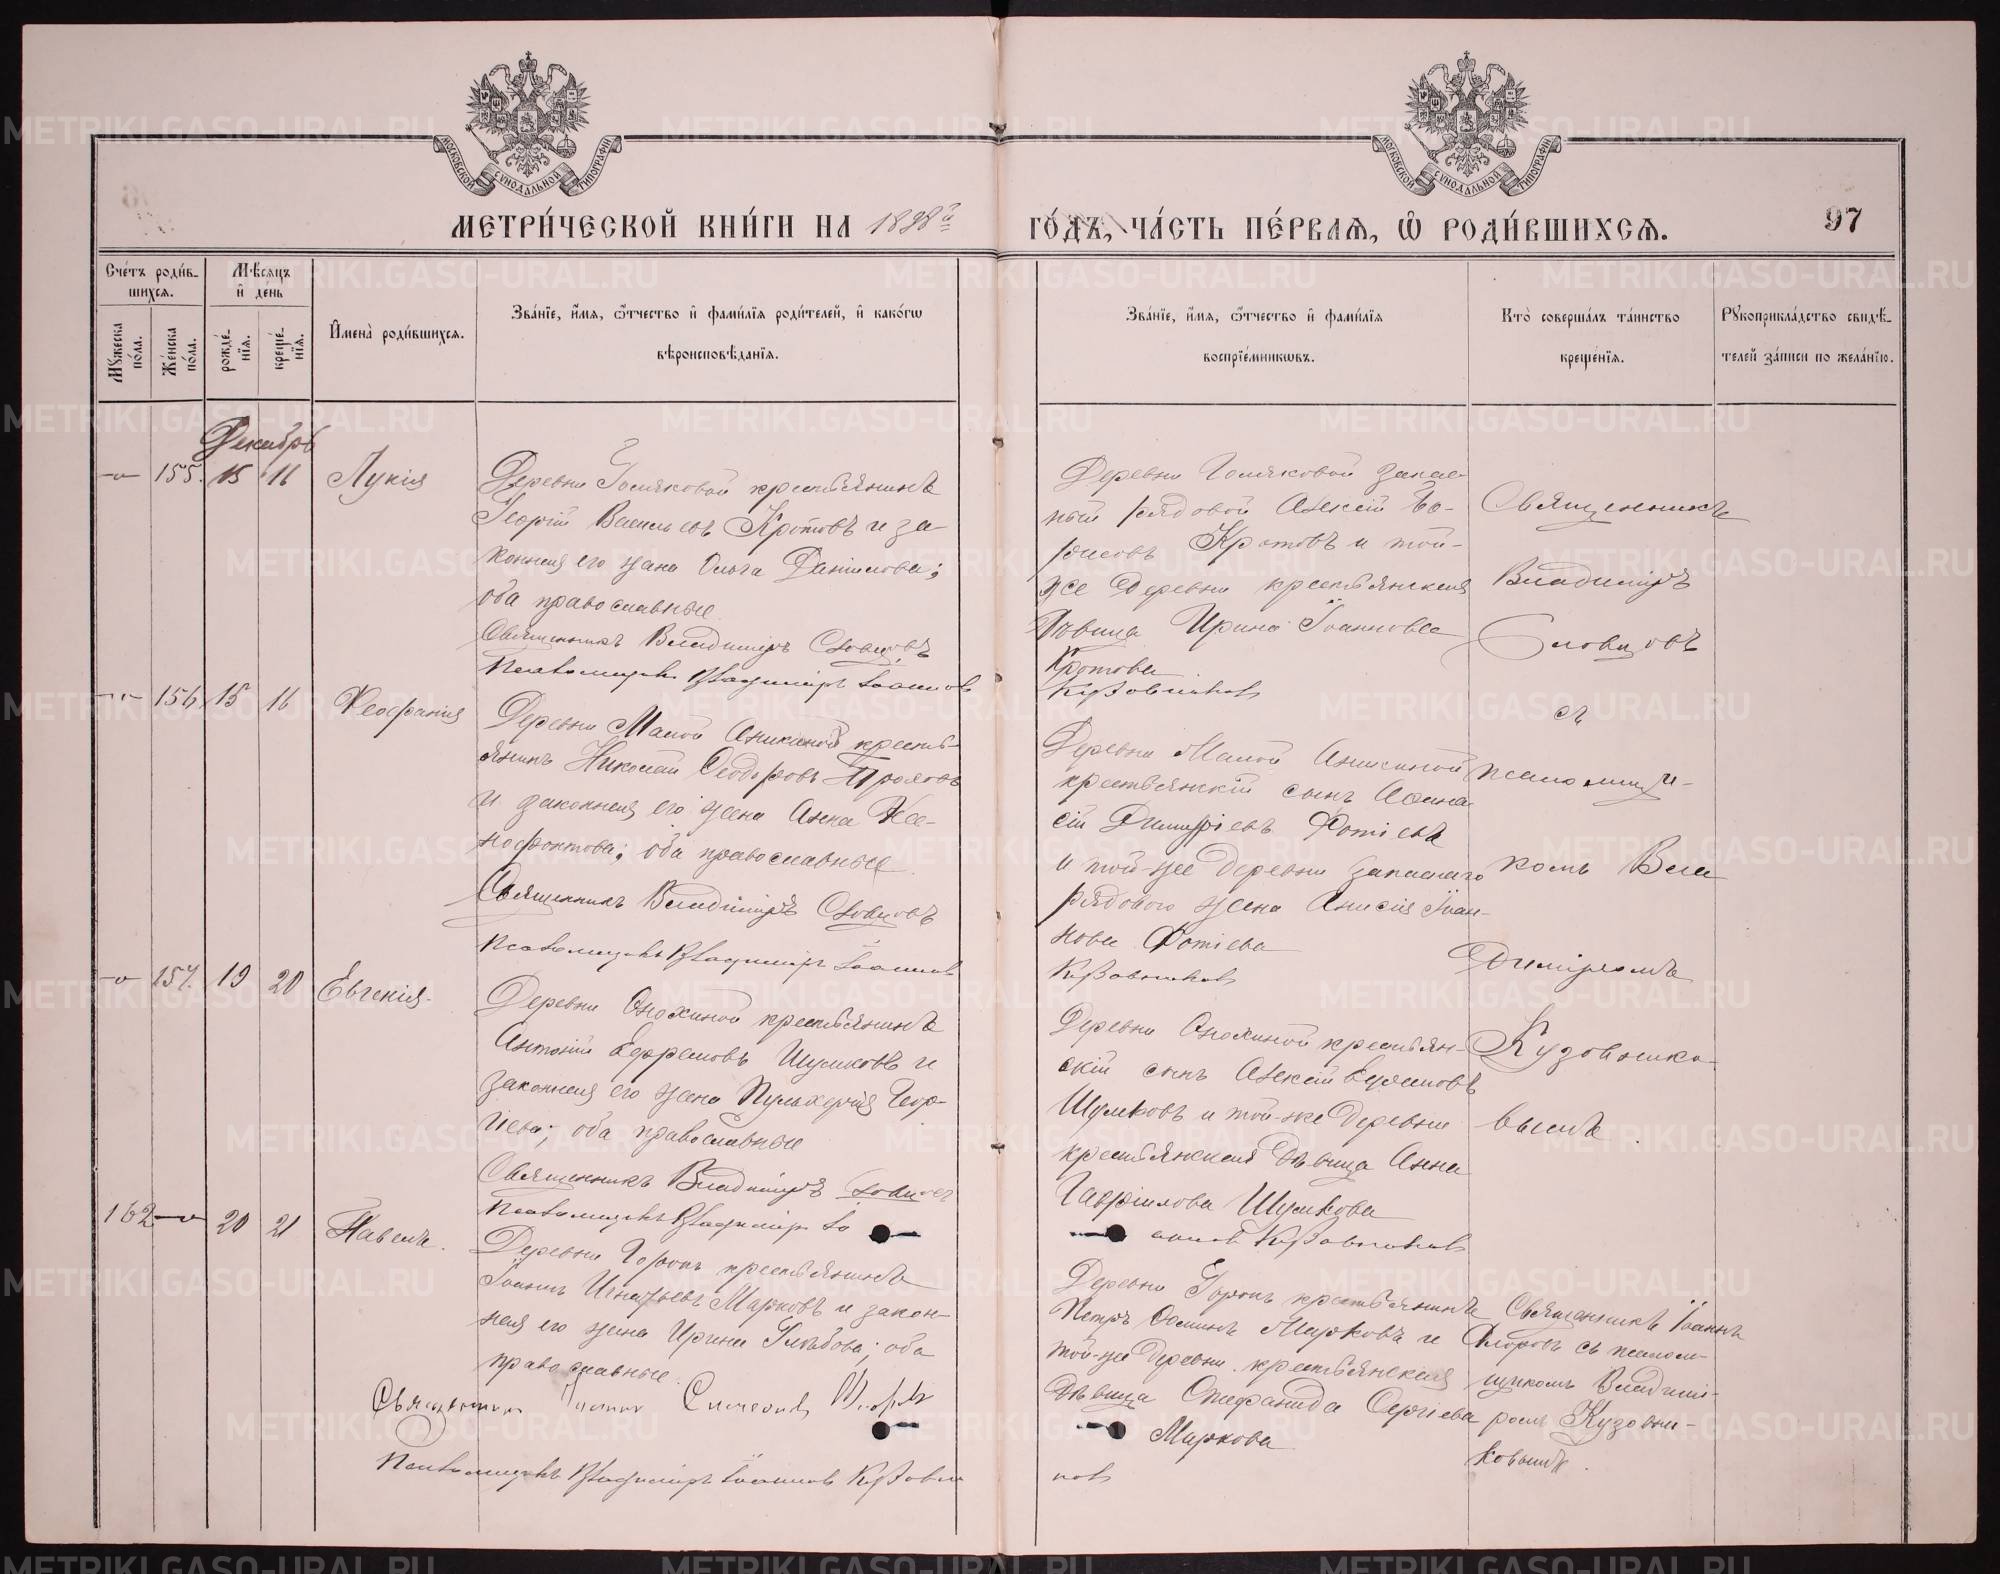 МОСКОВСКОЙ СѴНОДАЛЬНОЙ ТИПОГРАФІИ
МОСКОВСКОЙ СѴНОДАЛЬНОЙ ТИПОГРАФІИ
МЕТРИ́ЧЕСКОЙ КНИ́ГИ НА 1898й ГО́ДЪ, ЧА́СТЬ ПЕ́РВАѦ, Ѡ РОДИ́ВШИХСѦ. 97
Сче́тъ роди́в-
шихсѧ.
Мꙋжеска по́ла.
Же́нска по́ла.
Мѣ́сѧцъ
и де́нь
рожде́нїѧ.
креще́нїѧ.
Имена̀ роди́вшихсѧ.
Зва́нїе, и́мѧ, ѻ҆́тчество и фами́лїѧ роди́телей, и како́гѡ
вѣроисповѣ́данїѧ.
Зва́нїе, и́мѧ, ѻ҆́тчество и фами́лїѧ
воспрїе́мникѡвъ.
Кто̀ соверша́лъ та́инство
креще́нїѧ.
Рꙋкоприкла́дство свидѣ́-
телей за́писи по жела́нїю.
Декабрь
155. 15 16 Лукія
Деревни Голяковой крестьянинъ
Георгій Васильевъ Кротовъ и за-
конная его жена Ольга Данилова;
оба православные.
Священникъ Владиміръ Словцовъ
Псаломщикъ Владиміръ Іоанновъ
Деревни Голяковой запас-
ный рядовой Алексій Бо-
рисовъ Кротовъ и той-
же деревни крестьянская
дѣвица Ирина Іоаннова
Кротова
Кузовниковъ
Священникъ
Владиміръ
Словцовъ
съ
псаломщи-
комъ Вла
диміромъ
Кузовнико-
вымъ.
156. 15 16 Феофанія
Деревни Малой Аникиной кресть-
янинъ Николай Ѳеодоровъ Фроловъ
и законная его жена Анна Ксе-
нофонтова; оба православные.
Священникъ Владиміръ Словцовъ
Псаломщикъ Владиміръ Іоанновъ
Деревни Малой Аникиной
крестьянскій сынъ Аѳана-
сій Димитріевъ Фотіевъ
и той-же деревни запаснаго
рядового жена Анисія Іоан-
нова Фотіева
Кузовниковъ
157. 19 20 Евгенія.
Деревни Анохиной крестьянинъ
Антоній Ефремовъ Шумковъ и
законная его жена Пульхерія Геор-
гіева; оба православные
Священникъ Владиміръ Словцовъ
Псаломщикъ Владиміръ Іо
Деревни Анохиной крестьян-
скій сынъ Алексій Ефремовъ
Шумковъ и той-же деревни
крестьянская дѣвица Анна
Гавріилова Шумкова
анновъ Кузовниковъ
162 20 21 Павелъ.
Деревни Горокъ крестьянинъ
Іоаннъ Игнатьевъ Марковъ и закон-
ная его жена Ирина Глѣбова; оба
православные.
Священникъ Іоаннъ Флоровъ
Псаломщикъ Владиміръ Іоанновъ Кузовни
ковъ
Деревни Горокъ крестьянинъ
Петръ Ѳоминъ Марковъ и
той-же деревни крестьянская
дѣвица Стефанида Сергіева
Маркова
Священникъ Іоаннъ
Флоровъ съ псалом-
щикомъ Владимі-
ромъ Кузовни-
ковымъ.
METRIKI.GASO-URAL.RU